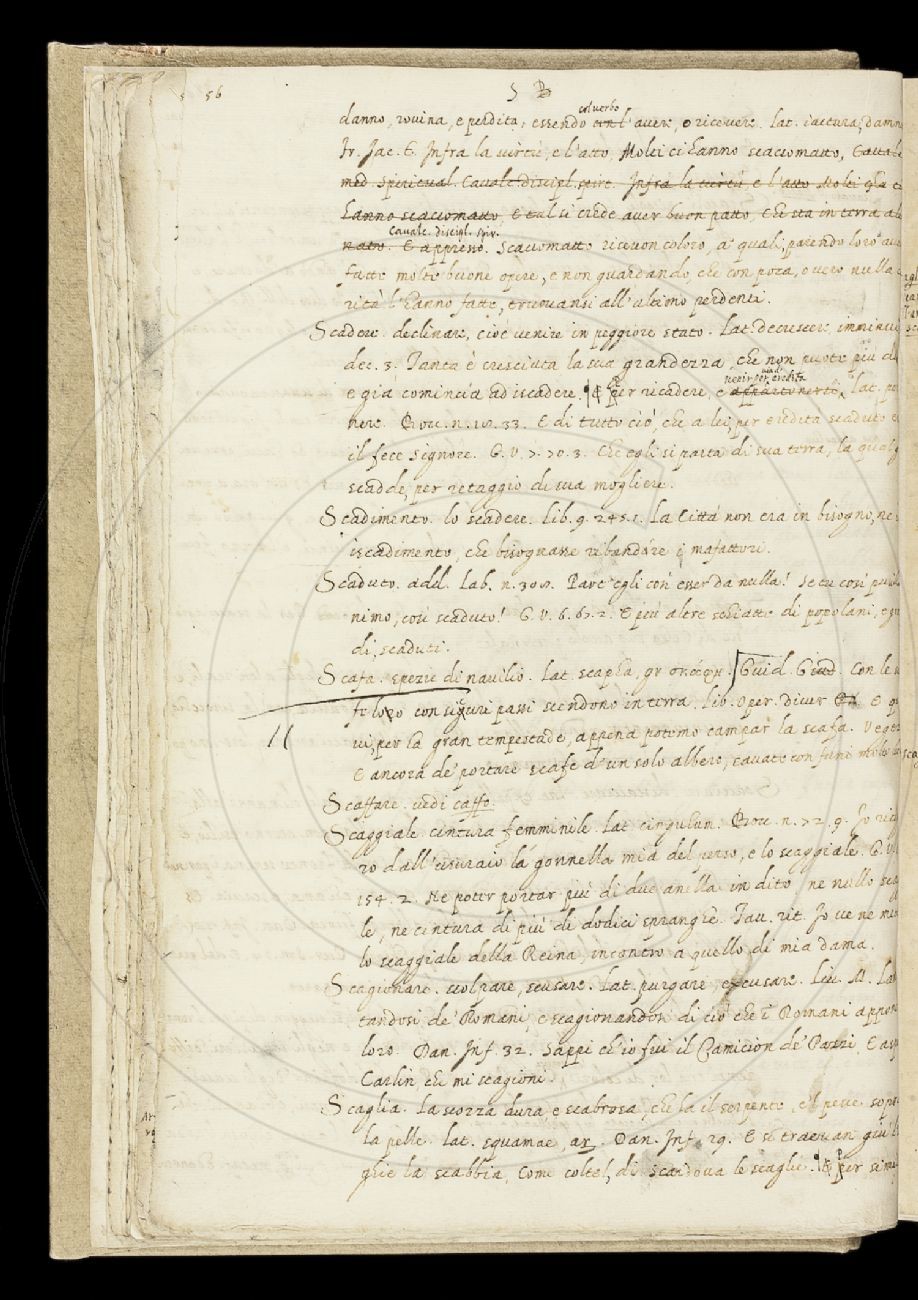 56
S B
col verbo
danno, rovina, e perdita, essendo con l'aver, o ricever. Lat. iactura, damn
Fr. Jac. T. Infra la virtù, e l'atto, Molti ci hanno scaccomatto, Caval
med. Spiritual. Cavalc. discipl. spir. Infra la virtù e l'atto Molti gia ci
hanno scaccomatto, E tal si crede aver buon patto, Che sta in terra
Cavalc. discipl. spir.
nato. E appresso. Scaccomatto ricevon coloro, a' quali, parendo loro
fatte molte buone opere, e non guardando, che con poca, o vero nulla
rità l'hanno fatte, truovansi all'ultimo perdenti.
Scadere. declinare, cioè venire in peggiore stato. Lat. decrescere, imminui
dec. 3. Tanta è cresciuta la sua grandezza, che non puote più
e già comincia ad iscadere. ¶ E per ricadere, e appartenersi, Lat. per
venir per eredità
nere. Bocc. n. 33. E di tutto ciò, che a lei, per eredità scaduto
il fece signore. G. V. 7. 70. 3. Che egli si parta di sua terra, la qual
scadde, per retaggio di sua mogliere.
Scadimento. lo scadere. Lib. 9. 245. 1. La Città non era in bisogno, ne
iscadimento, che bisognasse ribandire i malfattori.
Scaduto. add. Lab. n. 30 Parti egli così esser da nulla! Se tu così
nimo, così scaduto! G. V. 6. 63. 2. E più altre schiatte di popolani, e
di, scaduti.
Scafa. spezie di navilio. Lat. scapha, gr σκάφη. Guid. Giud. Con le
fe loro con siguri passi scendono in terra. Lib. Oper. diver E
vi, per la gran tempestade, appena potemo campar la scafa. Veget
E ancora de' portare scafe d'un solo albero, cavate con funi molto
11
Scaffare. vedi caffo.
Scaggiale. cintura femminile. Lat. cingulum. Bocc. n. 72. 9. Io ric
ro dall'usuraio la gonnella mia del perso, e lo scaggiale. G. V.
154. 2. Ne poter portar più di due anella in dito, ne nullo sca
le, ne cintura di più di dodici spranghe. Tav. rit. Io ve ne
lo scaggiale della Reina, incontro a quello di mia dama.
Scagionare. scolpare, scusare. Lat. purgare, excusare. Liv. M. La
tandosi de' Romani, e scagionandosi di ciò che i Romani appon
loro. Dan. Inf. 32. Sappi ch'io fui il Camicion de' Pazzi, E asp
Carlin, che mi scagioni.
Scaglia. La scorza dura, e scabrosa, che ha il serpente, e 'l pesce sopra
la pelle. Lat. squamae, ar. Dan. Inf. 29. E si traevan giù l'
ghie la scabbia, Come coltel, di scardova le scaglie. ¶ E per